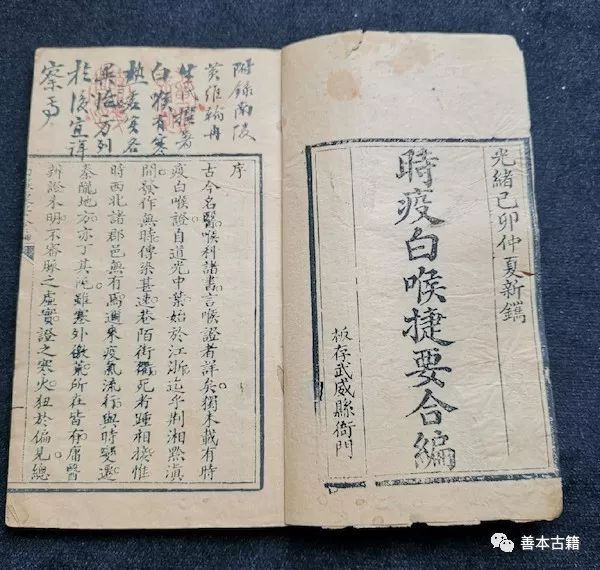 光緒己卯仲夏新鐫
時疫白喉捷要合編
板存武威縣衙門
附錄南陵
黃維翰冉
生氏撰著
白喉有寒
熱虛實各
異治方列
於後宜詳
察焉
序
古今名醫喉科諸書言喉證者詳矣獨未載有時
疫白喉證自道光中葉始於江浙迄乎荆湘黔滇
間發作無時傳染甚速巷陌街衢死者踵相接惟
時西北諸郡邑無有焉邇來疫氣流行與時變遷
秦隴地方亦丁其阨雖塞外徼荒所在皆有庸醫
辨證不明不審脈之虛實證之寒火狃於偏見總
善本古籍